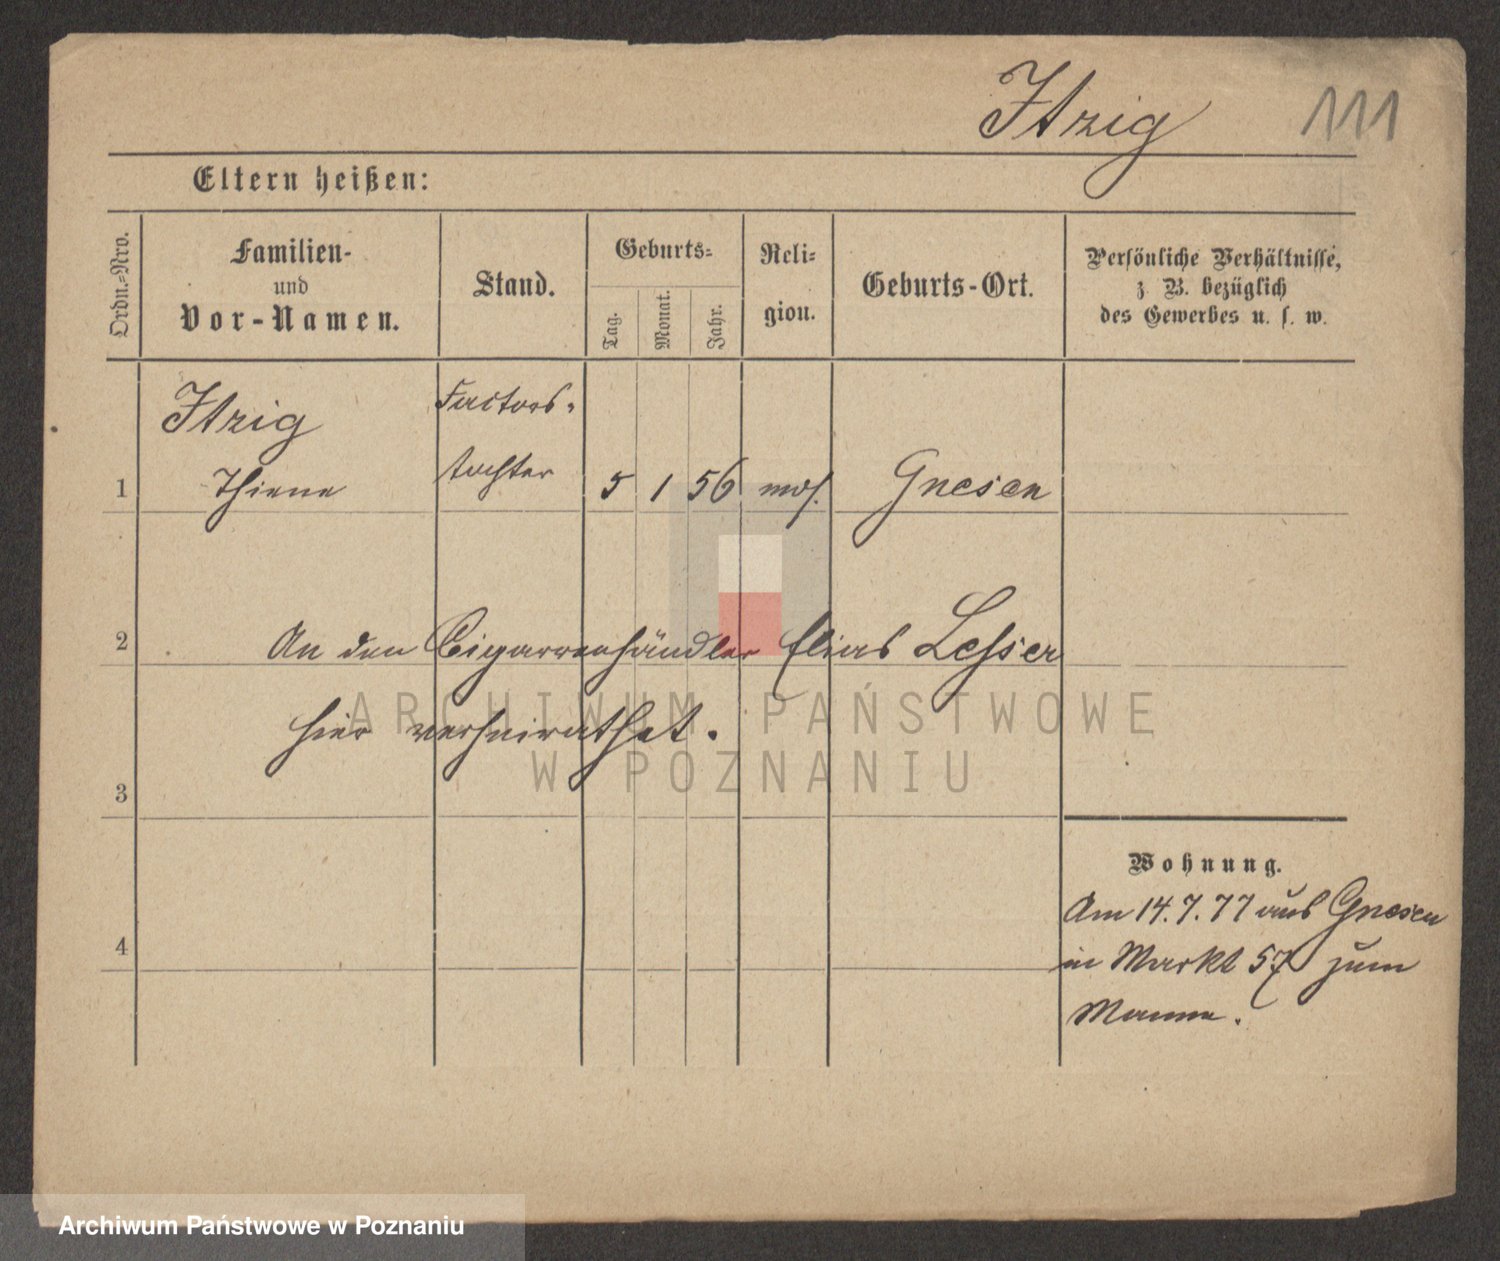 Itzig 111
Eltern heißen:
Ordn.=Nro.
Familien-
und
Vor-Namen.
Stand.
Geburts=
Tag.
Monat.
Jahr.
Reli=
gion.
Geburts-Ort.
Persönliche Verhältnisse,
z. B. bezüglich
des Gewerbes u. s. w.
Itzig Factors-
1 Thiene tochter 5 1 56 mos. Gnesen
2 An den Cigarrenhändler Elias Lesser
hier verheirathet.
3
Wohnung.
Am 14.7.77 aus Gnesen
4 in Markt 57 zum
Manne.
ARCHIWUM PAŃSTWOWE
W POZNANIU
Archiwum Państwowe w Poznaniu